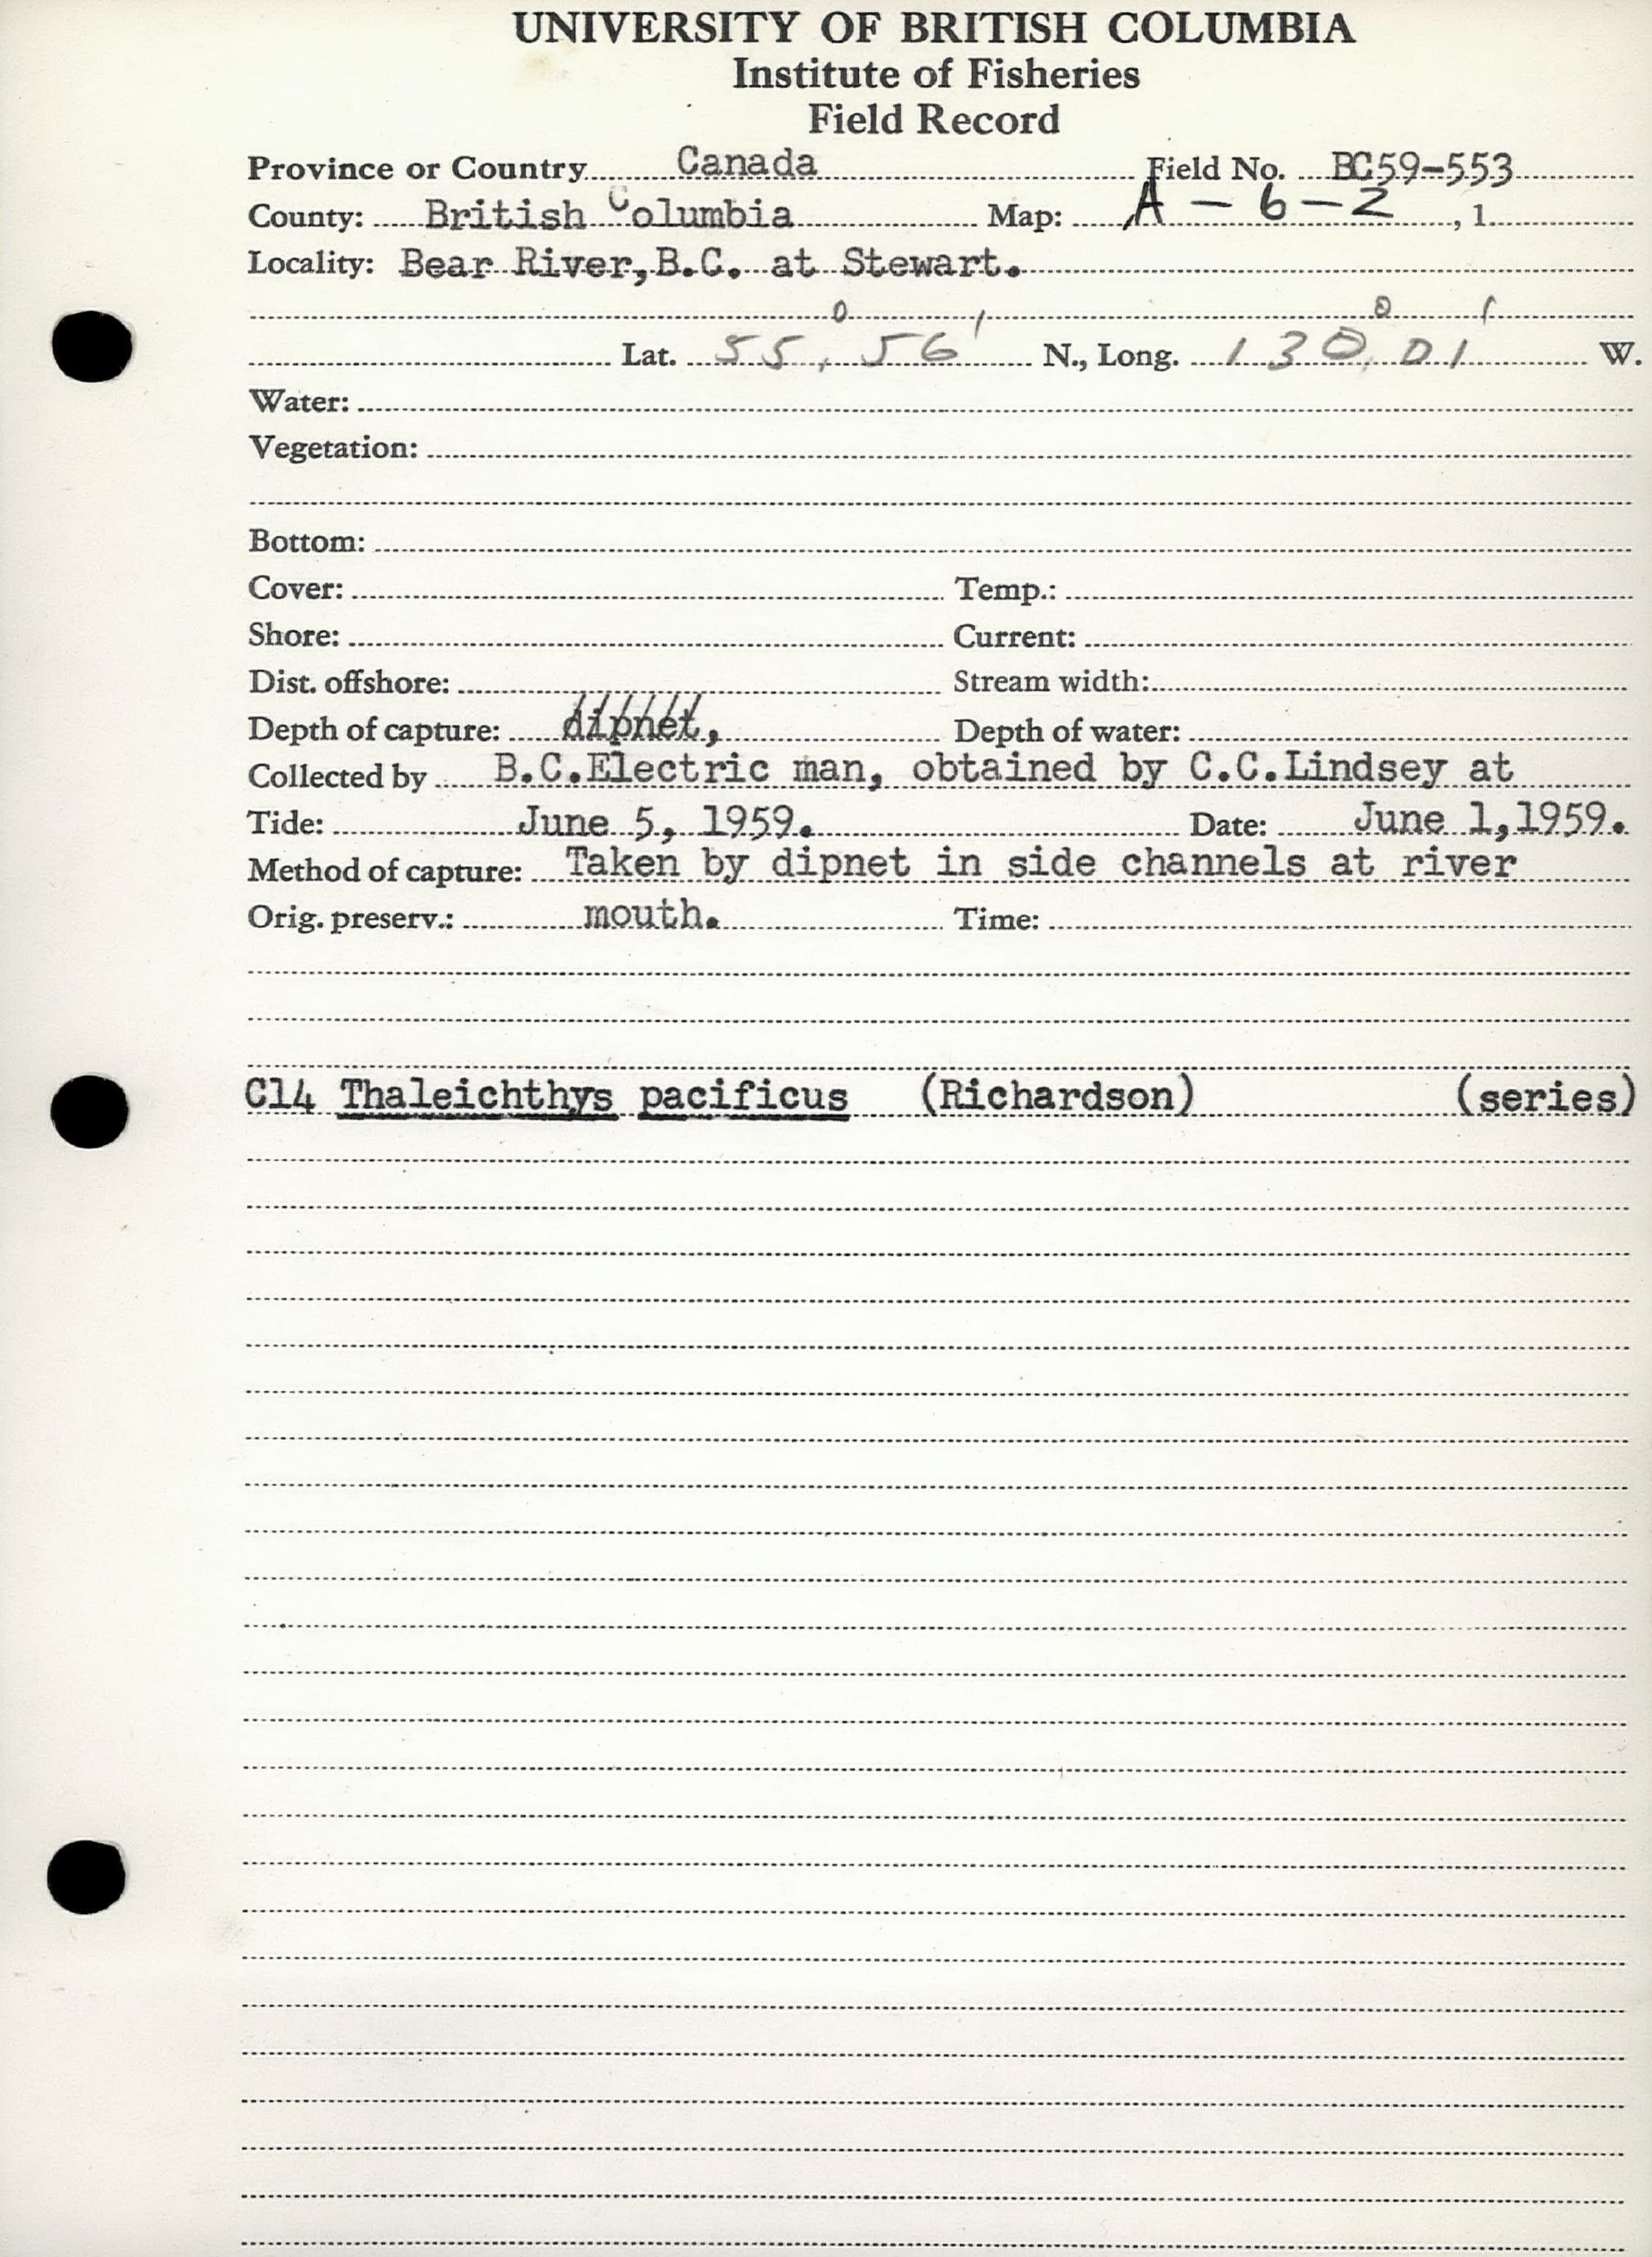 UNIVERSITY OF BRITISH COLUMBIA
Institute of Fisheries
Field Record
Province or Country Canada Field No. BC59-553
County: British Columbia Map: A - 6 - 2, 1
Locality: Bear River, B.C. at Stewart.
Lat. 55° 56' N., Long. 130° 01' W.
Water:
Vegetation:
Bottom:
Cover: Temp.:
Shore: Current:
Dist. offshore: Stream width:
Depth of capture: dipnet, Depth of water:
Collected by B.C.Electric man, obtained by C.C.Lindsey at
Tide: June 5, 1959. Date: June 1,1959.
Method of capture: Taken by dipnet in side channels at river
Orig. preserv.: mouth. Time:
C14 Thaleichthys pacificus (Richardson) (series)